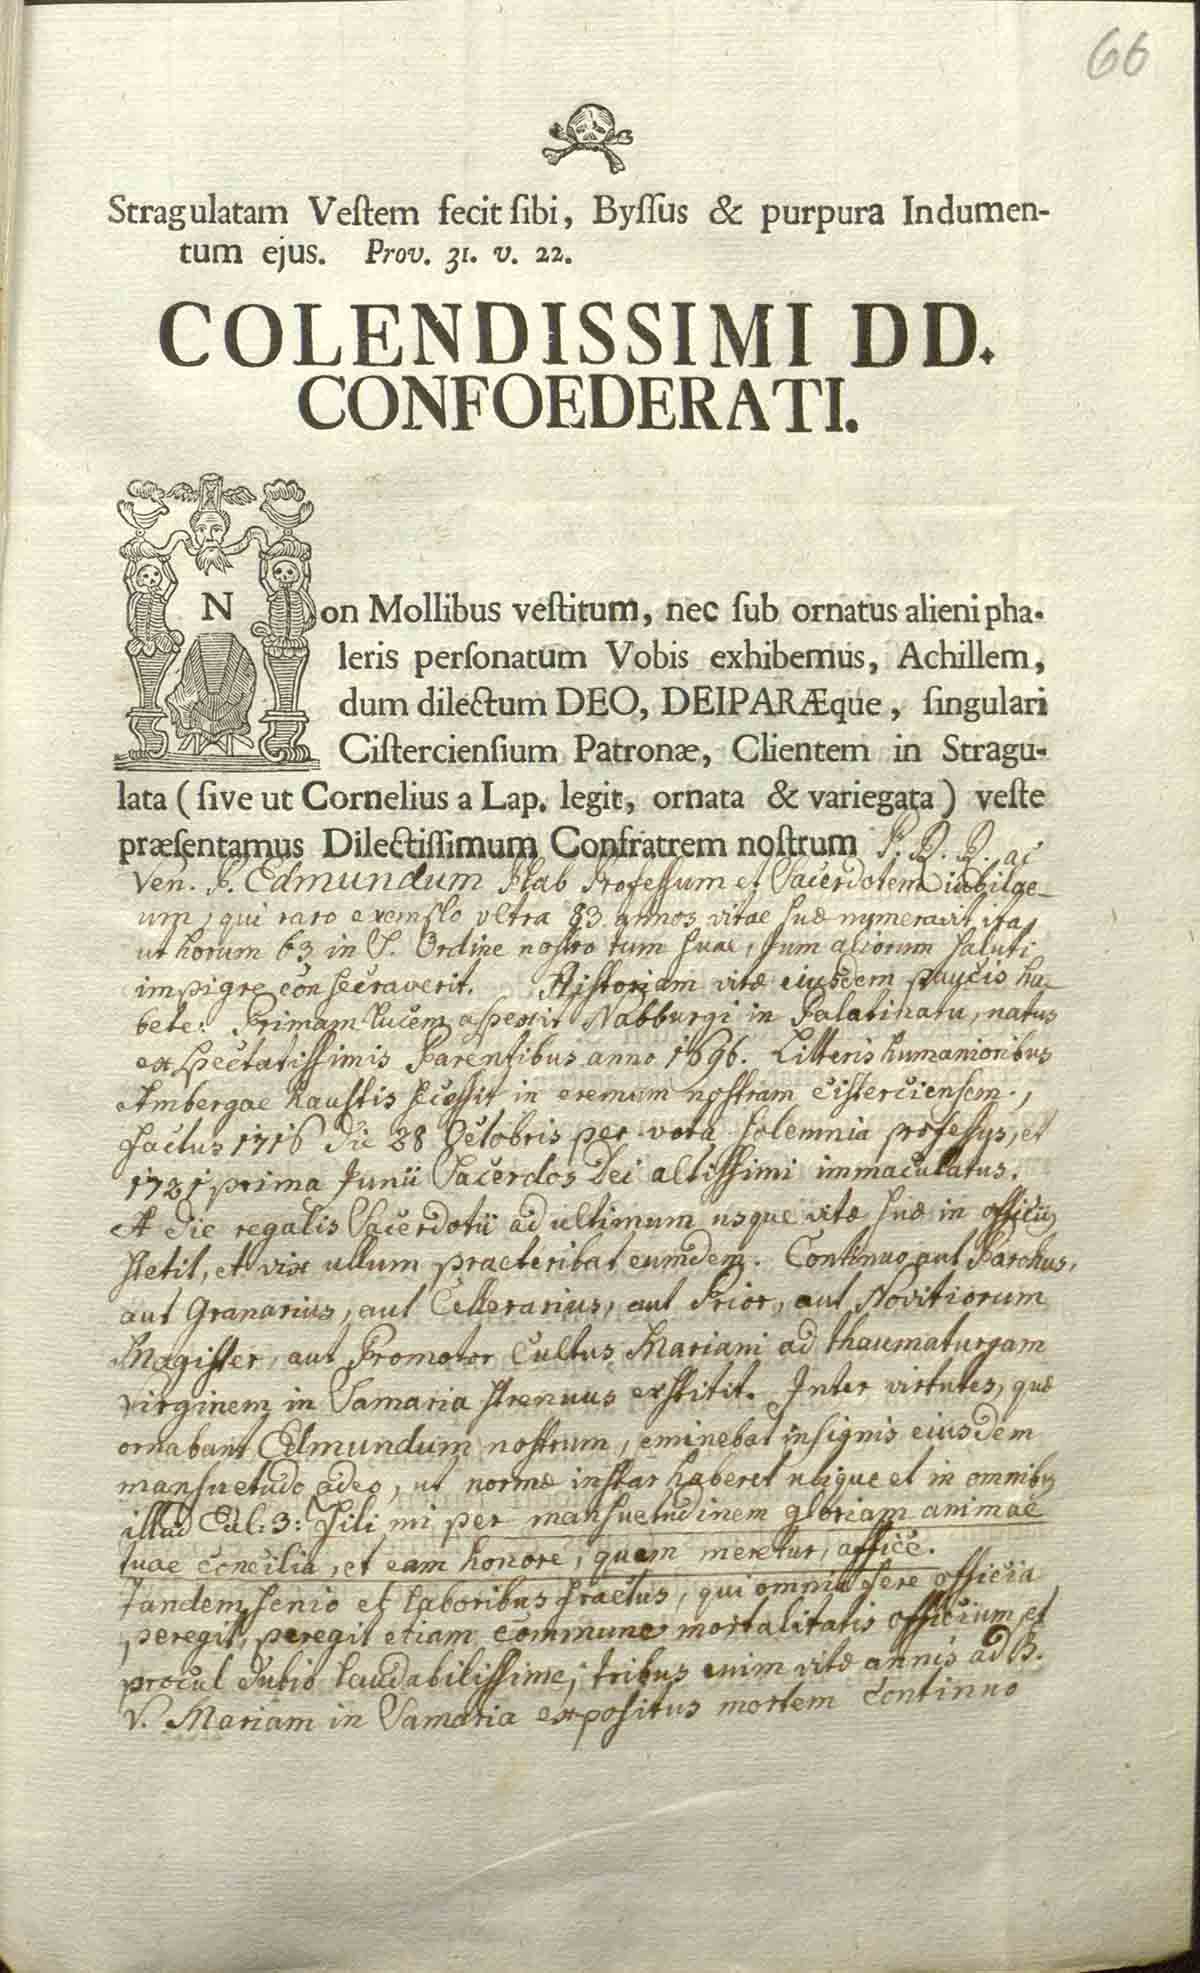 66
Stragulatam Veſtem fecit ſibi, Byſſus & purpura Indumen-
tum ejus. Prov. 31. v. 22.
COLENDISSIMI DD.
CONFOEDERATI.
Non Mollibus veſtitum, nec ſub ornatus alieni pha-
leris perſonatum Vobis exhibemus, Achillem,
dum dilectum DEO, DEIPARÆque, ſingulari
Ciſtercienſium Patronæ, Clientem in Stragu-
lata (ſive ut Cornelius a Lap. legit, ornata & variegata) veſte
præſentamus Dilectiſſimum Confratrem noſtrum P. R. R. ac
Ven. P. Edmundum Plab Profeſſum et Sacerdotem iubilae-
um, qui raro exemplo ultra 83 annos vitae ſuæ numeravit, ita,
ut horum 63 in S. Ordine noſtro tum ſuae, tum aliorum ſaluti
impigre conſecraverit. Hiſtoriam vitæ eiusdem paucis ha-
bete: Primam lucem aſpexit Nabburgi in Palatinatu, natus
ex ſpectatiſſimis Parentibus anno 1696. Litteris humanioribus
Ambergae hauſtis ſeceſſit in eremum noſtram Ciſtercienſem,
factus 1716 die 28 Octobris per vota ſolemnia profeſſus, et
1721 prima Junii Sacerdos Dei altiſſimi immaculatus.
A die regalis Sacerdotii ad ultimum usque vitæ ſuæ in officiis
ſtetit, et vix ullum praeteribat eumdem. Continuo aut Parochus,
aut Granarius, aut Cellerarius, aut Prior, aut Novitiorum
Magiſter, aut Promotor Cultus Mariani ad thaumaturgam
virginem in Samaria ſtrenuus exſtitit. Inter virtutes, quæ
ornabant Edmundum noſtrum, eminebat inſignis eiusdem
manſuetudo adeo, ut normæ inſtar haberet ubique et in omnibus
illud Eccl: 3: Fili mi per manſuetudinem gloriam animae
tuae concilia, et eam honore, quem meretur, affice.
Tandem ſenio et laboribus fractus, qui omnia fere officia
peregit, peregit etiam commune mortalitatis officium, et
procul dubio laudabiliſſime; tribus enim vitæ annis ad B.
V. Mariam in Samaria expoſitus mortem continuo